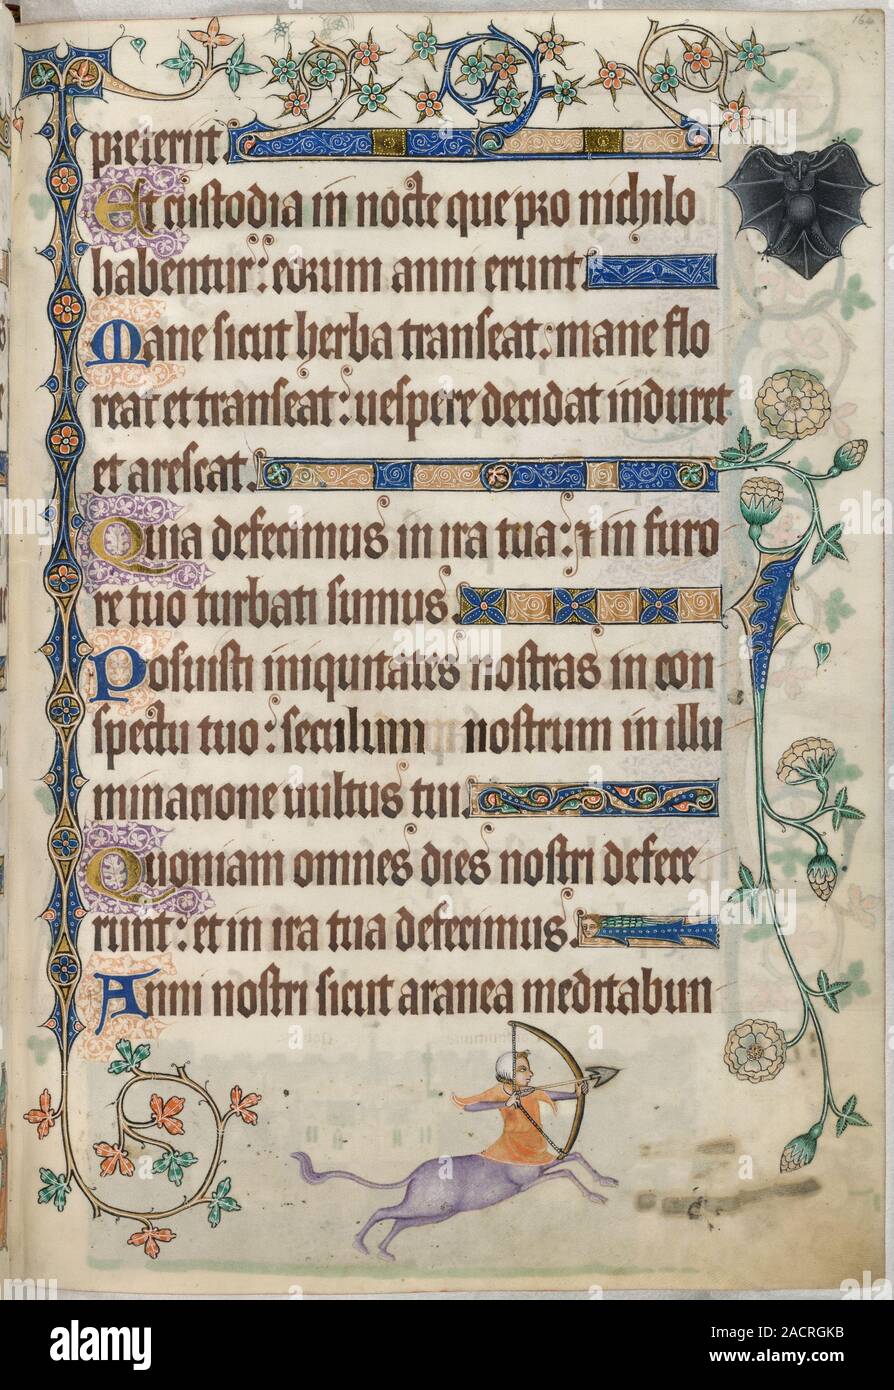 164
preterint.
Et custodia in nocte que pro nichilo
habentur: eorum anni erunt.
Mane sicut herba transeat: mane flo
reat et transeat: uespere decidat induret
et arescat.
Quia defecimus in ira tua: ⁊ in furo
re tuo turbati sumus.
Posuisti iniquitates nostras in con
spectu tuo: seculum nostrum in illu
minacione uultus tui.
Quoniam omnes dies nostri defece
runt: et in ira tua defecimus.
Anni nostri sicut aranea meditabun
alamy
Image ID: 2ACRGKB
www.alamy.com